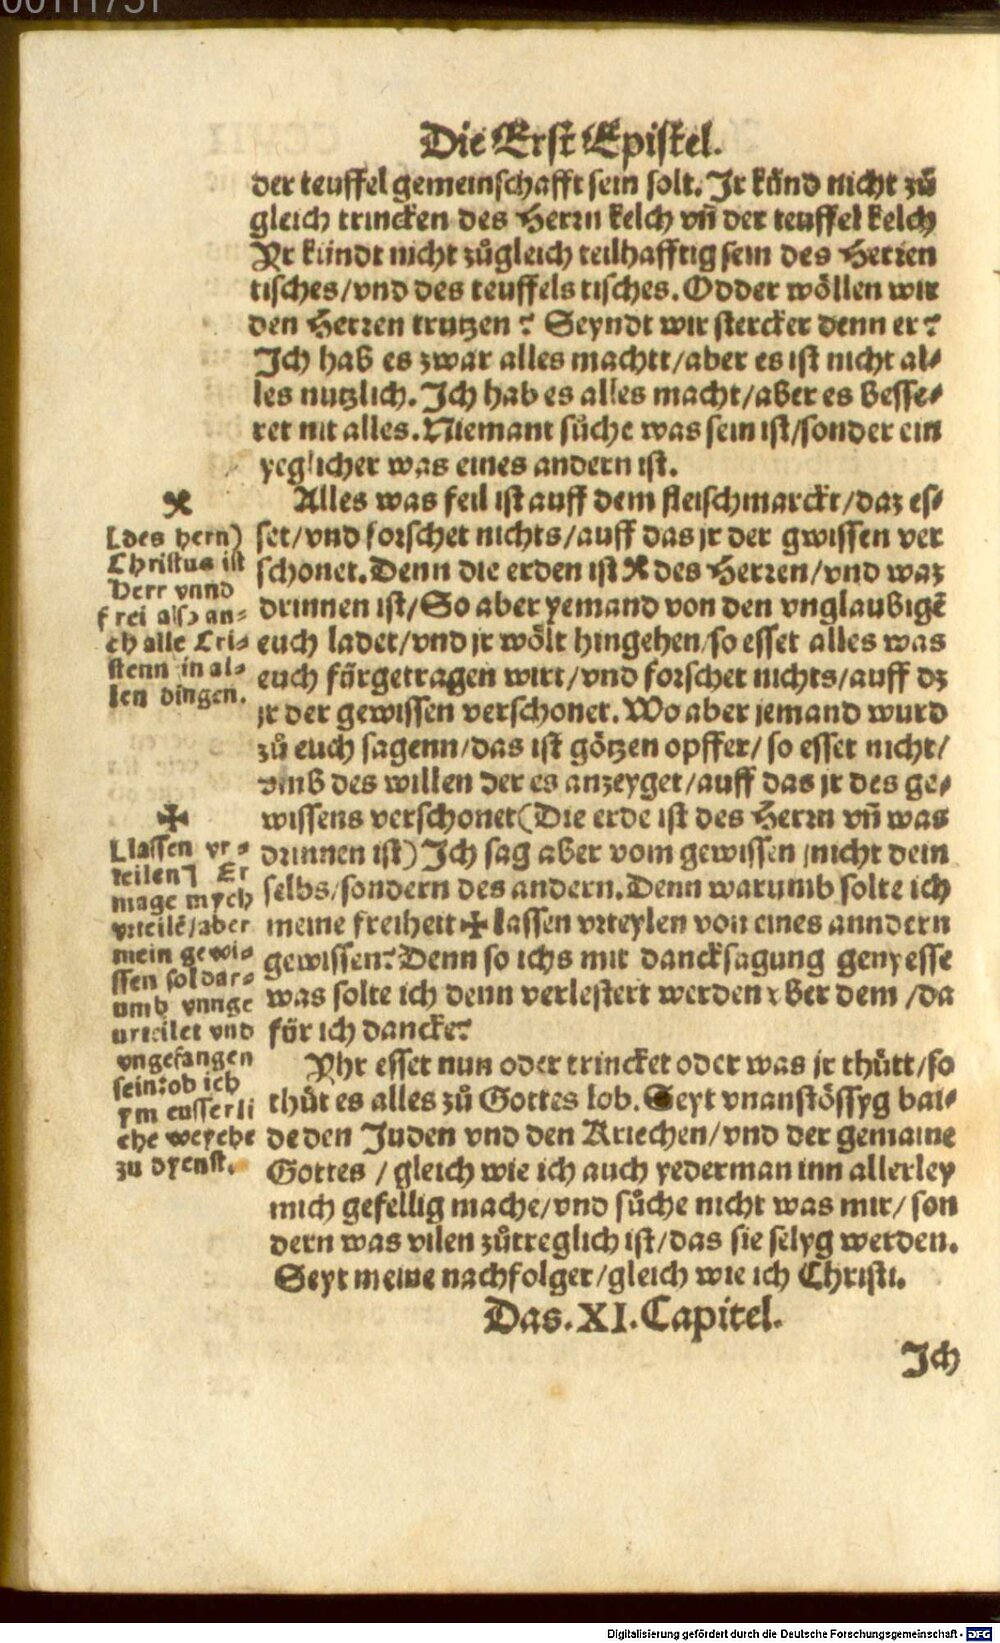 Die Erst Epistel.
der teuffel gemeinschafft sein solt. Jr künd nicht zů
gleich trincken des Herrn kelch vñ der teuffel kelch
Yr kündt nicht zůgleich teilhafftig sein des Herren
tisches/vnd des teuffels tisches. Odder wöllen wir
den Herren trutzen? Seyndt wir stercker denn er?
Jch hab es zwar alles machtt/aber es ist nicht al-
les nutzlich. Jch hab es alles macht/aber es besse-
ret nit alles. Niemant sůche was sein ist/sonder ein
yeglicher was eines andern ist.
Alles was feil ist auff dem fleischmarckt/daz es-
set/vnd forschet nichts/auff das jr der gwissen ver
schonet. Denn die erden ist des Herren/vnd waz
drinnen ist/So aber yemand von den vnglaubigē
euch ladet/vnd jr wölt hingehen/so esset alles was
euch förgetragen wirt/vnd forschet nichts/auff dz
jr der gewissen verschonet. Wo aber jemand wurd
zů euch sagenn/das ist götzen opffer/so esset nicht/
vmb des willen der es anzeyget/auff das jr des ge-
wissens verschonet(Die erde ist des Herrn vñ was
drinnen ist) Jch sag aber vom gewissen/nicht dein
selbs/sondern des andern. Denn warumb solte ich
meine freiheit ✠ lassen vrteylen von eines anndern
gewissen? Denn so ichs mit dancksagung genyesse
was solte ich denn verlestert werden vber dem/da
för ich dancke?
Yhr esset nun oder trincket oder was jr thůtt/so
thůt es alles zů Gottes lob. Seyt vnanstössyg bai-
de den Juden vnd den Kriechen/vnd der gemaine
Gottes/gleich wie ich auch yederman inn allerley
mich gefellig mache/vnd sůche nicht was mir/son
dern was vilen zůtreglich ist/das sie selyg werden.
Seyt meine nachfolger/gleich wie ich Christi.
Das. XI. Capitel.
Jch
[des hern)
Christus ist
Herr vnnd
frei also an-
ch alle Cri-
stenn in al-
len dingen.
✠
[lassen vr-
teilen] Er
mage mych
vrteilē/aber
mein gewi-
ssen sol dar-
umb vnnge
urteilet vnd
vngefangen
sein: ob ich
ym eusserli
che weyche
zu dyenst.
Digitalisierung gefördert durch die Deutsche Forschungsgemeinschaft - DFG